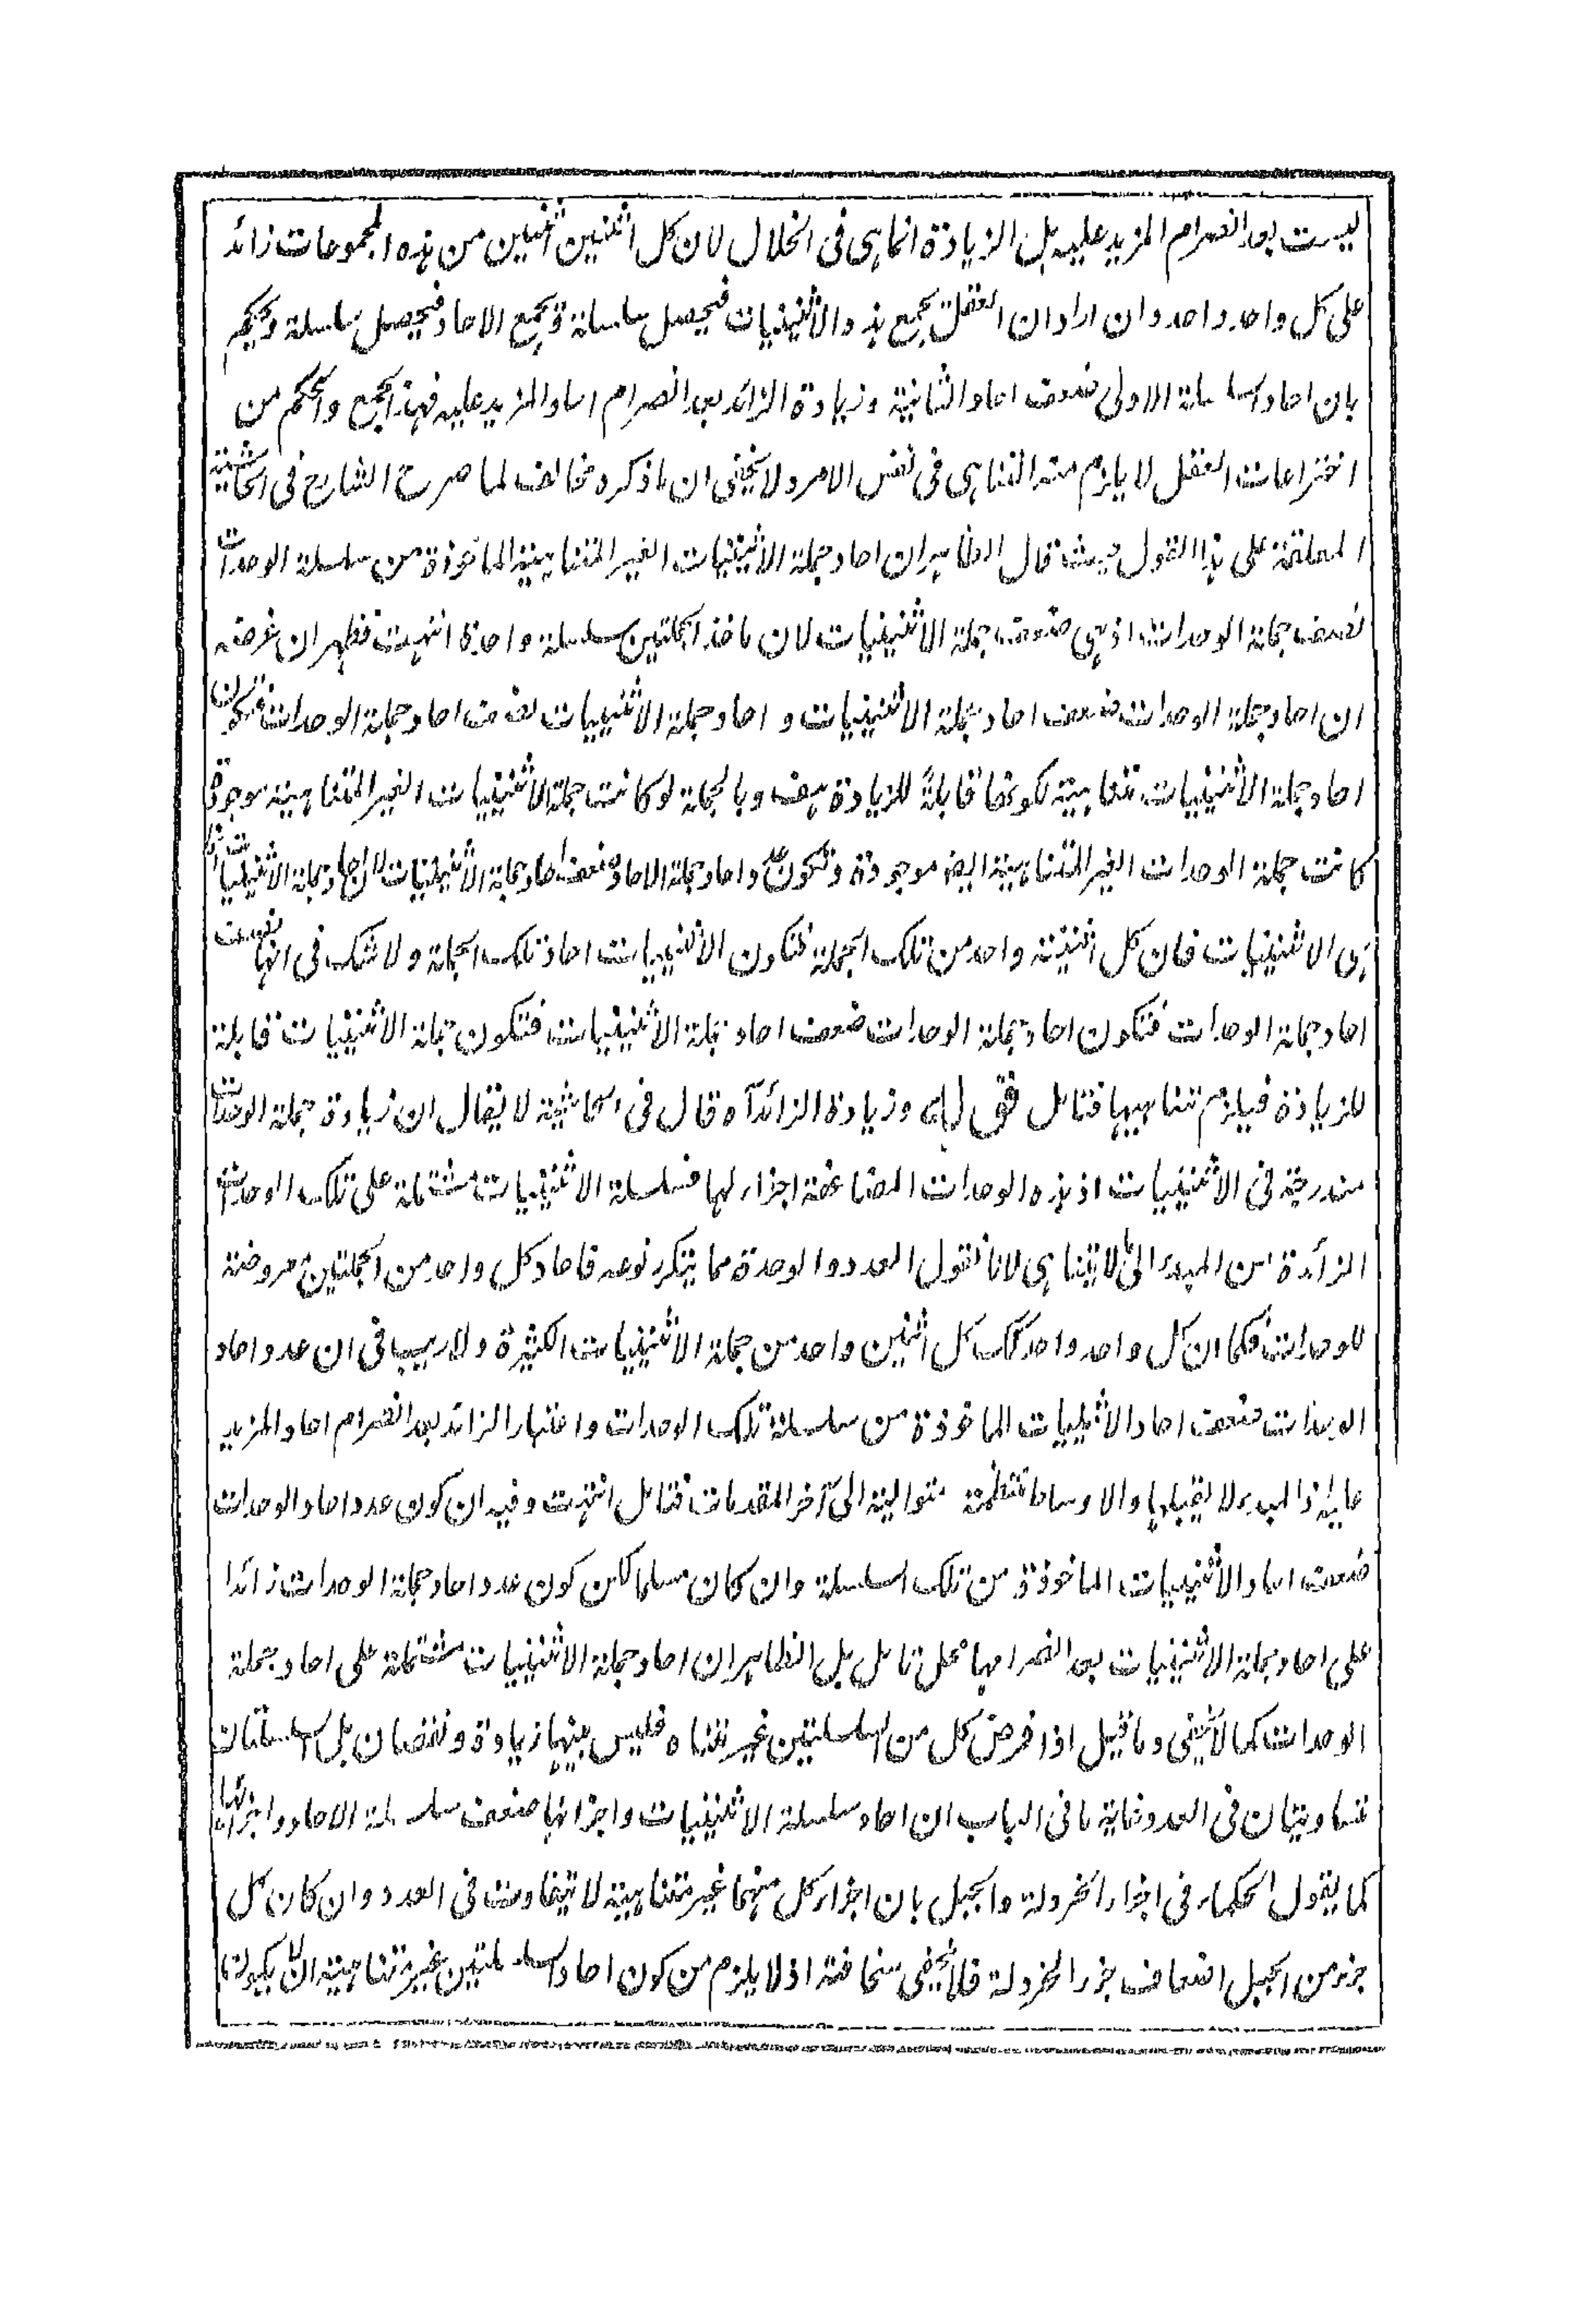 ليست بعد انصرام المزيد عليه بل الزيادة انما هى فى الخلال لان كل اثنين اثنين من هذه المجموعات زائد
على كل واحد واحد وان اراد ان العقل يجمع هذه الاثنينيات فيحصل سلسلة ويجمع الاحاد فيحصل سلسلة ويحكم
بان احاد السلسلة الاولى ضعف احاد الثانية وزيادة الزائد بعد انصرام احاد المزيد عليه فهذا الجمع والحكم من
اختراعات العقل لا يلزم منه التناهى فى نفس الامر ولا يخفى ان ما ذكره مخالف لما صرح الشارح فى الحاشية
المعلقة على هذا القول حيث قال الظاهر ان احاد جملة الاثنينيات الغير المتناهية الماخوذة من سلسلة الوحدات
نصف جملة الوحدات اذ هى ضعف جملة الاثنينيات لان ماخذ الجملتين سلسلة واحدة انتهت فظهر ان غرضه
ان احاد جملة الوحدات ضعف احاد جملة الاثنينيات و احاد جملة الاثنينيات نصف احاد جملة الوحدات فيكون
احاد جملة الاثنينيات متناهية لكونها قابلة للزيادة هف وبالجملة لو كانت جملة الاثنينيات الغير المتناهية موجودة
كانت جملة الوحدات الغير المتناهية ايضا موجودة وتكون احاد جملة الاحاد ضعف احاد جملة الاثنينيات لان احاد جملة الاثنينيات
هى الاثنينيات فان كل اثنينية واحد من تلك الجملة فتكون الاثنينيات احاد تلك الجملة ولا شك فى انها نصف
احاد جملة الوحدات فتكون احاد جملة الوحدات ضعف احاد جملة الاثنينيات فتكون جملة الاثنينيات قابلة
للزيادة فيلزم تناهيها فتامل قوله وزيادة الزائد آه قال فى الحاشية لا يقال ان زيادة جملة الوحدات
مندرجة فى الاثنينيات اذ هذه الوحدات المضاعفة اجزاء لها فسلسلة الاثنينيات مشتملة على تلك الوحدات
الزائدة من المبدء الى ما لا يتناهى لانا نقول العدد والوحدة مما يتكرر نوعه فاحاد كل واحد من الجملتين معروضة
للوحدات فكما ان كل واحد واحد كذلك كل اثنين واحد من جملة الاثنينيات الكثيرة ولا ريب فى ان عدد احاد
الوحدات ضعف احاد الاثنينيات الماخوذة من سلسلة تلك الوحدات واعتبار الزائد بعد انصرام احاد المزيد
عليه اذ المبدء لا يقبلها والاوساط منتظمة متوالية الى آخر المقدمات فتامل انتهت وفيه ان كون عدد احاد الوحدات
ضعف احاد الاثنينيات الماخوذة من تلك السلسلة وان كان مسلما لكن كون عدد احاد جملة الوحدات زائدا
على احاد جملة الاثنينيات بعد انصرامها محل تامل بل الظاهر ان احاد جملة الاثنينيات مشتملة على احاد جملة
الوحدات كما لا يخفى وما قيل اذا فرض كل من السلسلتين غير متناه فليس بينهما زيادة ونقصان بل السلسلتان
متساويتان فى العدد وغاية ما فى الباب ان احاد سلسلة الاثنينيات واجزائها ضعف سلسلة الاحاد واجزائها
كما يقول الحكماء فى اجزاء الخردلة والجبل بان اجزاء كل منهما غير متناهية لا يتفاوت فى العدد وان كان كل
جزء من الجبل اضعاف جزء الخردلة فلا يخفى سخافته اذ لا يلزم من كون احاد السلسلتين غير متناهية ان لا يكون